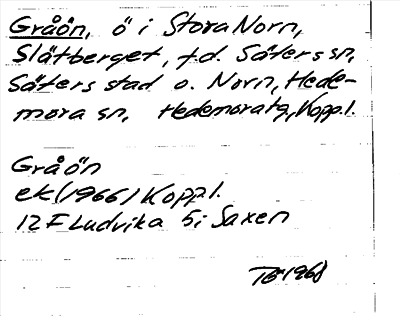 Gråön, ö i Stora Norn,
Slätberget, f.d. Säters sn,
Säters stad o. Norn, Hede-
mora sn, Hedemora tg, Kopp.l.
Gråön
ek (1966) Kopp l.
12 F Ludvika 5 i Saxen
1968